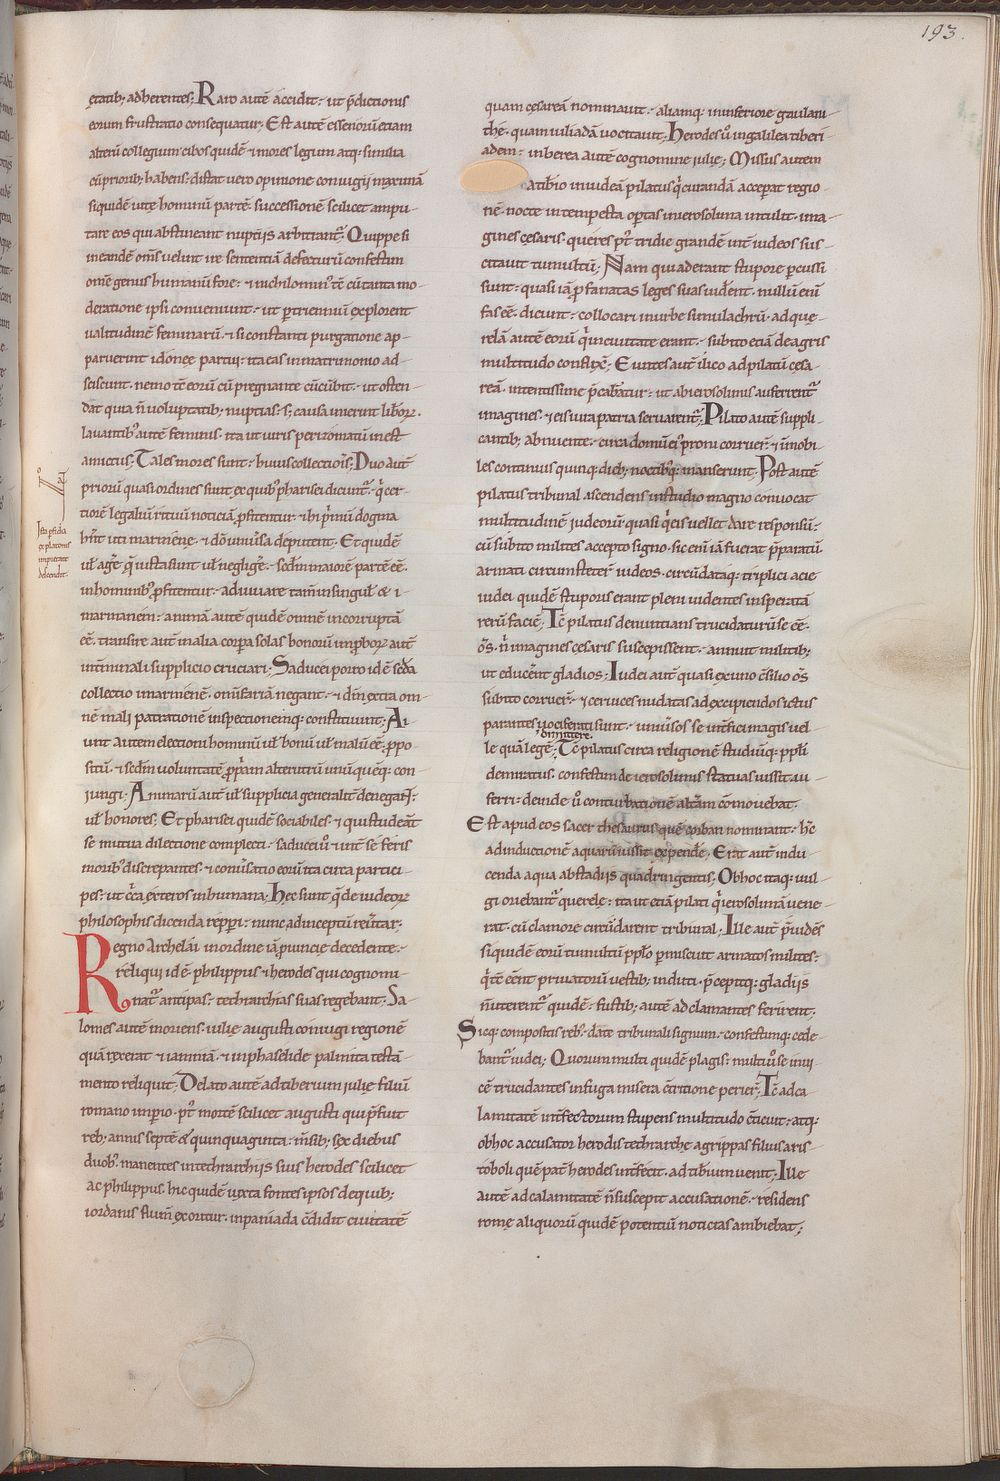 193.
ętatib; adherentes; Raro autē accidit· ut p̄dictionis
eorum frustratio consequatur; Est autē esseniorū etiam
alterū collegium cibos quidē & mores legum atq; similia
cū priorib; habens· distat vero opinione coniugii maximā
siquidē uitę hominū partē· successionē scilicet ampu-
tare eos qui abstineant nuptiis arbitrant᷑; Quippe si
in eandē om̄s uelint ire sententiā defecturū confestim
om̄e genus humanū fore· & nichilomin᷒ tc̄ cū tanta mo-
deratione ipsi conueniunt· ut p triennıū explorent
ualitudinē feminarū· & si constanti purgatione ap-
paruerint idoneę partui· ita eas in matrimonio ad-
sciscunt· nemo tc̄ eorū cū pregnante cūcūbit· ut osten-
dat quia n̄ voluptatib; nuptias· s; causa inierint liboꝝ·
Lauantib᷒ autē feminis· ita ut uiris perizomatū inest
amictus; Tales mores sunt· huius collectiois; Duo aut̄
priorū quasi ordines sunt ex quib᷒ pharisei dicunt᷑· q̄ cer-
tiorē legaliū rituū noticiā ꝓfitentur· & hi p̄mū dogma
hn̄t uti marmene· & dō uniūsa deputent; Et quidē
ul̄ agē q̄ iusta sunt ul̄ negligē· sed in maiorē partē eē·
in hominib᷒ ꝓfitentur· adiuuare tam̄ in singul̄ & i-
marmanem· animā autē quidē omnē incorruptā
eē· transire aut̄ in alia corpa solas bonorū impboꝝ aut̄
int̄minali supplicio cruciari; Saducei porro id ē scd̄a
collectio imarmenē· omīfariā negant· & dm̄ extra om-
nē mali patrationē inspectionemq; constituunt; Ai
unt autem electioni hominū ul̄ bonū ul̄ malū eē ꝓpo
sitū· & sedm̄ voluntatē ꝓpam̄ alterutrū unū quēq; con-
iungi; Animarū aut̄ ul̄ supplicia generalit̄ denegat·
ul̄ honores; Et pharisei quidē sociabiles· & qui studeāt
se mutua dilectione complecti· saducei ū & int̄ se feris
morib᷒ discrepantes· & conūsatio eorū ita circa partici-
pes· ut cc̄a exteros inhumana; Hęc sunt q̄ de iudeoꝝ
philosophis dicenda repperi· nunc ad inceptū reūtar;
Regno Archelai in ordine iā ꝓuincię decedente·
reliqui idē philippus & herodes qui cognomi-
nat᷑ antipas· tetrarchias suas regebant; Sa-
lomes autē moriens· iulię augusti coniugi regionē
quā rexerat & iamniā· & in phaselide palmita testā-
mento reliquit; Delato autē ad tiberium iulię filiū
romano imperio· p̄t mortē scilicet augusti qui p̄fuit
reb; annis septē & quinquaginta· m̄sib; sex diebus
duob᷒· manentes in tetrarchiis suis herodes scilicet
ac philippus· hic quidē iuxta fontes ipsos de quib;
iordanis flum̄ exoritur· in paniada c̄didit ciuitatē
Ista pfidia
ex platonis
impietate
descendit·
quam cęsareā nominauit· aliamq; in inferiore gaulani-
thē· quam iuliadā uocitauit; Herodes ū in galilea tiberi-
adem· in berea autē cognomine iulię; Missus autem
a tibio in iudeā pilatus q̄ curandā acceperat regio-
nē· nocte intempesta optas in ierosolima intulit· ima-
gines cęsaris· quę res p̄t tridie grandē int̄ iudeos sus-
citauit tumultū; Nam qui aderant stupore pcussi
sunt· quasi iā ꝓfanatas leges suas uid̄ent· nullū eni
fas eē· dicunt· collocari in urbe simulachrū· ad que-
relā autē eorū q̄ in ciuitate erant· subito etiā de agris
multitudo conflux̄; Euntes aut̄ ilico ad pilatū cesa-
reā· intentissime p̄cabat᷑ur· ut ab ierosolimis auferrent᷑
imagines· & eis iura patria seruarent᷑; Pilato autē suppli-
cantib; abnuente· circa domū ei᷒ proni corruer̄· & inmobi-
les continuis quinq; dieb; noctibq; manserunt; Post autē
pilatus tribunal ascendens in studio magno conuocat
multitudinē iudeorū quasi q̄ eis uellet dare responsū·
cū subito milites accepto signo· sic enī iā fuerat p̄paratū
armati circumsteter̄ iudeos· circūdatiq; triplici acie
iudei quidē stuporis erant pleni uidentes insperatā
rerū faciē; Tc̄ pilatus denuntians trucidaturū se eē·
oīs· n̄ imagines cęsaris suscepissent· annuit militib;
ut educerent gladios; Iudei aut̄ quasi ex uno c̄silio oīs
subito corruer̄· & ceruices nudatas ad excipiendos ictus
parantes uociferati sunt· uniūsos se int̄fici magis uel-
dimittere·
le quā legē; Tc̄ pilatus circa religionē studiūq; ppli
demiratus· confestim de ierosolimis statuas iussit au-
ferri· deinde ū conturbationē altam cōmouebat·
Est apud eos sacer thesaurus quē corban nominant· hc̄
ad inductionē aquarū iussit expendē· Erat aut̄ indu-
cenda aqua ab stadiis quadringentis; Ob hoc itaq; uul-
gi oriebant᷑ querelę· ita ut etiā pilati q̄ ierosolimā uene-
rat· cū clamore circūdarent tribunal; Ille aut̄ p̄uidēs
siquidē eorū tumultū pplo pmiscuit armatos milites·
q̄ tc̄ eent priuatorū uestib; induti· p̄ceptq; gladiis
n̄ uterent᷑ quidē· fustib; autē adclamantes ferirent·
Sicq; compositis reb᷒· dāte tribunali signum· confestimq; cede-
bant᷑ iudei; Quorum multi quidē plagis· multi ū se inui-
cē trucidantes in fuga misera c̄tritione perier̄; Tc̄ ad ca-
lamitatē int̄fectorum stupens multitudo c̄ticuit· atq;
ob hoc accusator herodis tetrarchę agrippas filius aris-
toboli quē pat̄ herodes int̄fecit· ad tibium uenit; Ille
autē ad calamitatē n̄ suscepit accusationē· residens
romę aliquorū quidē potentiū noticias ambiebat;